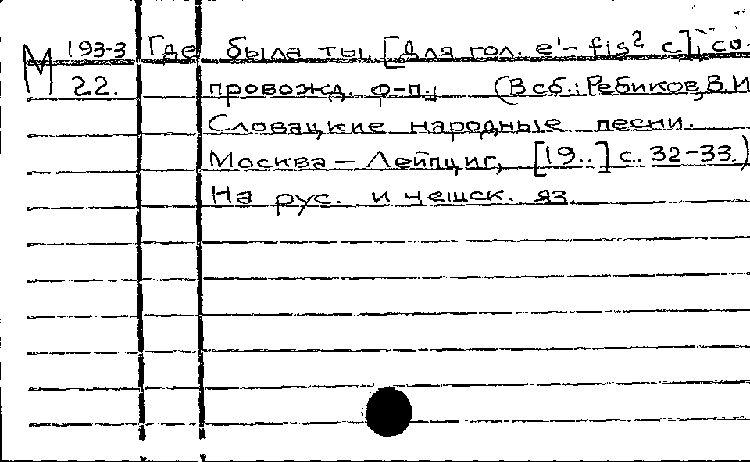 М 193-3 Где была ты, [для гол. e'– fis² с]; со
22. провожд. ф-п.; (В сб.: Ребиков, В.И
Словацкие народные песни.
Москва – Лейпциг, [19..] с. 32-33.)
На рус. и чешск. яз.